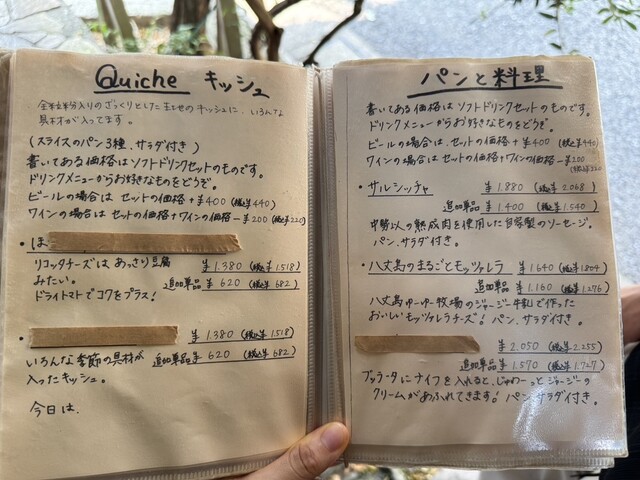 Quiche キッシュ
全粒粉入りのざっくりとした生地のキッシュに、いろんな
具材が入ってます。
(スライスのパン3種、サラダ付き)
書いてある価格はソフトドリンクセットのものです。
ドリンクメニューからお好きなものをどうぞ。
ビールの場合はセットの価格+¥400(税込¥440)
ワインの場合は セットの価格+ワインの価格-¥200(税込¥220)
・ほ
リコッタチーズは あっさり豆腐 ¥1.380(税込¥1.518)
みたい。 追加単品¥620(税込¥682)
ドライトマトでコクをプラス!
・ ¥1.380(税込¥1.518)
いろんな季節の具材が 追加単品¥620(税込¥682)
入ったキッシュ。
今日は、
パンと料理
書いてある価格はソフトドリンクセットのものです。
ドリンクメニューからお好きなものをどうぞ。
ビールの場合は、セットの価格+¥400(税込¥440)
ワインの場合は セットの価格+ワインの価格-¥200
(税込¥220)
・サルシッチャ ¥1.880(税込¥2.068)
追加単品¥1.400(税込¥1.540)
中勢以の熟成肉を使用した自家製のソーセージ。
パン、サラダ付き。
・八丈島のまるごとモッツァレラ ¥1640(税込1804)
追加単品¥1.160(税込¥1.276)
八丈島ゆーゆー牧場のジャージー牛乳で作った
おいしいモッツァレラチーズ! パン、サラダ付き。
¥2.050(税込¥2.255)
追加単品¥1.570(税込¥1.727)
ブッラータにナイフを入れると、じゅわーっとジャージーの
クリームがあふれてきます! パン、サラダ付き。